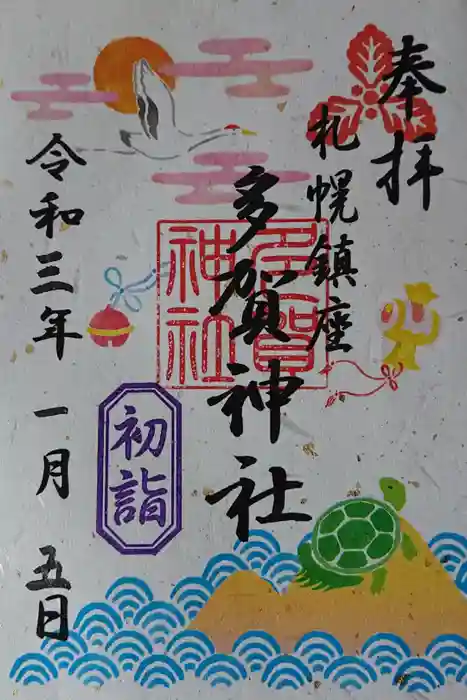 奉拝
札幌鎮座
多賀神社
多賀神社
初詣
令和三年 一月 五日